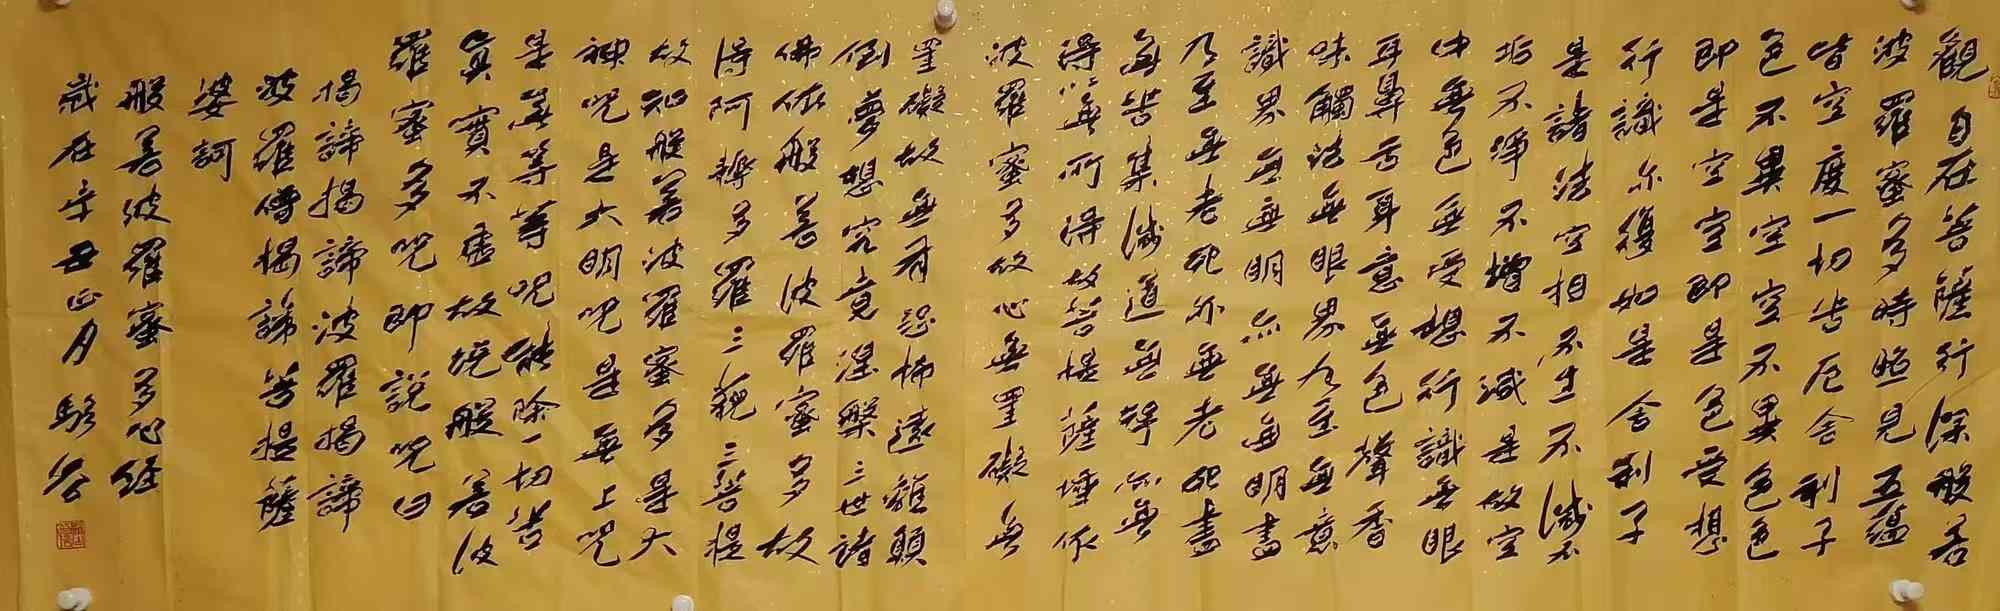 觀自在菩薩行深般若
波羅蜜多時照見五蘊
皆空度一切苦厄舍利子
色不異空空不異色色
即是空空即是色受想
行識亦復如是舍利子
是諸法空相不生不滅不
垢不淨不增不減是故空
中無色無受想行識無眼
耳鼻舌耳意無色聲香
味觸法無眼界乃至無意
識界無無明亦無無明盡
乃至無老死亦無老死盡
無苦集滅道無智亦無
得以無所得故菩提薩埵依
波羅蜜多故心無罣礙無
罣礙故無有恐怖遠離顛
倒夢想究竟涅槃三世諸
佛依般若波羅蜜多故
得阿耨多羅三藐三菩提
故知般若波羅蜜多是大
神咒是大明咒是無上咒
是無等等咒能除一切苦
真實不虛故說般若波
羅蜜多咒即說咒曰
揭諦揭諦波羅揭諦
波羅僧揭諦菩提薩
婆訶
般若波羅蜜多心經
歲在辛丑正月